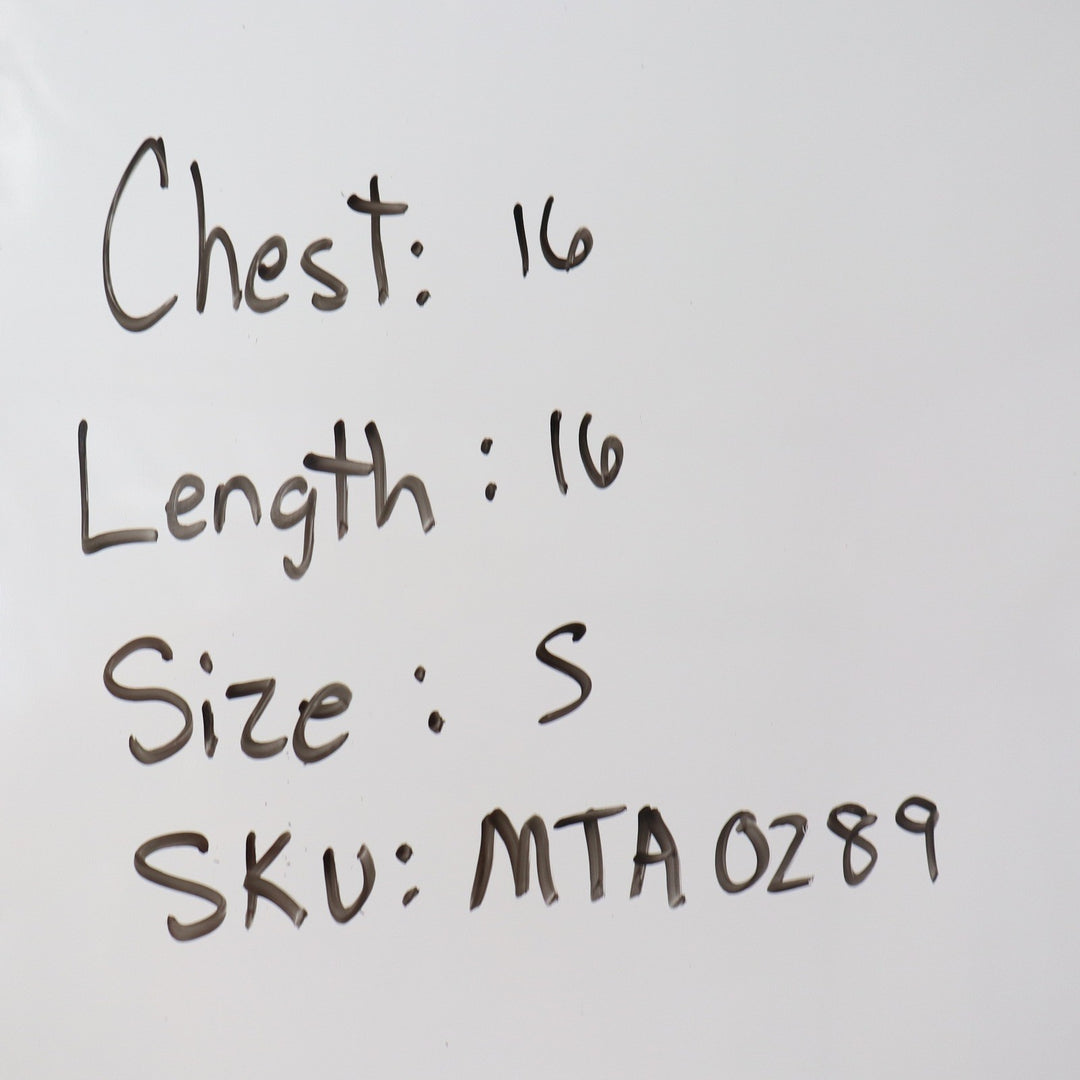 Chest: 16
Length: 16
Size: S
SKU: MTA0289